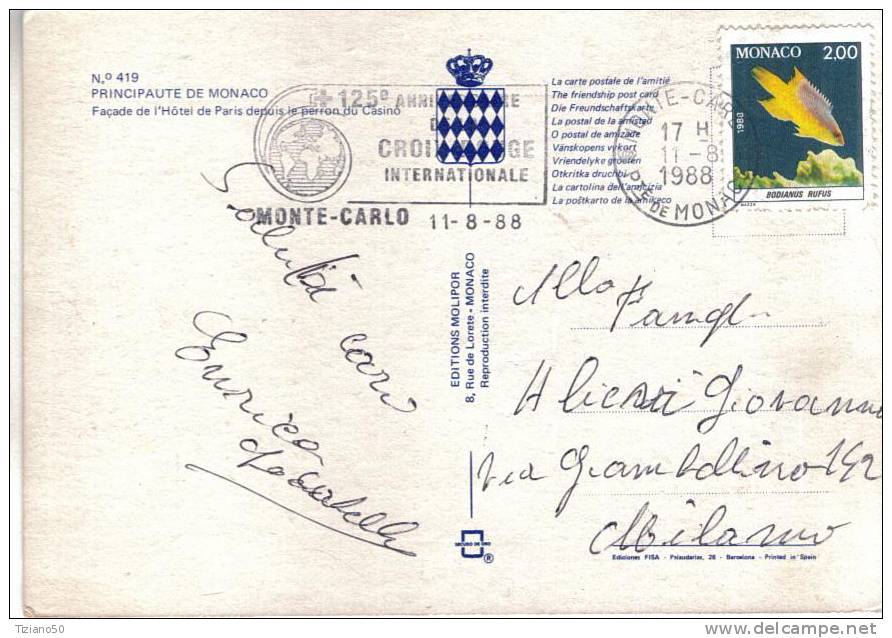 N.º 419
PRINCIPAUTE DE MONACO
Façade de l'Hôtel de Paris depuis le perron du Casino
125e ANNIVERSAIRE
DE LA
CROIX ROUGE
INTERNATIONALE
MONTE-CARLO 11-8-88
La carte postale de l'amitié
The friendship post card
Die Freundschaftskarte
La postal de la amistad
O postal de amizade
Vänskopens vykort
Vriendelyke groeten
Otkritka druchbi
La cartolina dell'amicizia
La poŝtkarto de la amikeco
MONTE-CARLO
17 H
11-8
1988
PTE DE MONACO
MONACO 2,00
1988
BODIANUS RUFUS
Saluti cari
Enrico
EDITIONS MOLIPOR
8, Rue de Lorete - MONACO
Reproduction interdite
Alla Famigl
Aliesi Giovanni
Via Giambellino 142
Milano
SECURO DE ORO
®
Ediciones FISA - Palaudarias, 26 - Barcelona - Printed in Spain
Tziano50
delcampe.net